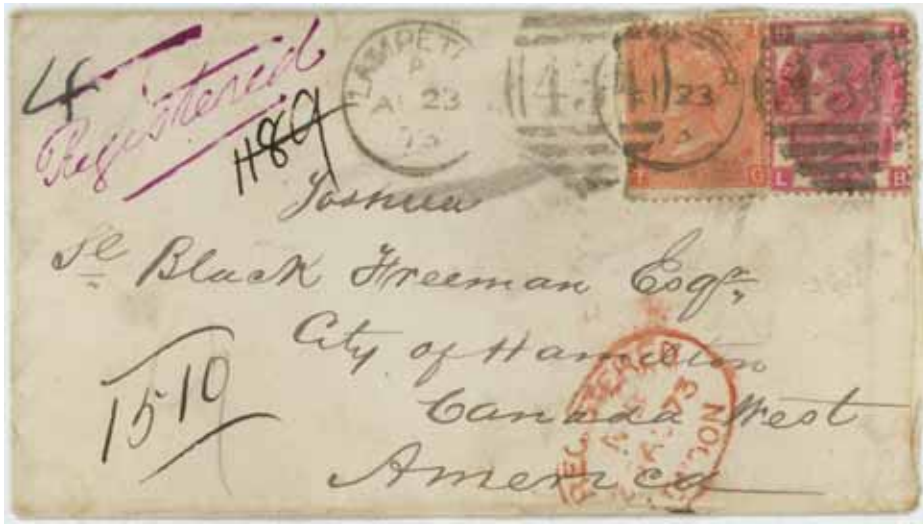 4
Registered
1189
LAMPETER
AU 23
73
43
41
23
73
43
I
G
L
B
Joshua
Black Freeman Esqr.
City of Hamilton
Canada West
America
1510
REGISTERED
LONDON
73